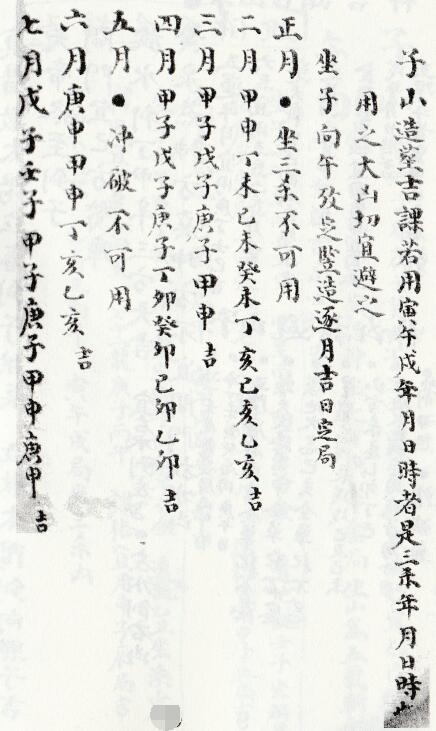 子山造葬吉課若用寅午戌年月日時者是三杀年月日時
用之大凶切宜避之
坐子向午攷定豎造逐月吉日定局
正月●坐三杀不可用
二月甲申丁未己未癸未丁亥己亥乙亥吉
三月甲子戊子庚子甲申吉
四月甲子戊子庚子丁卯癸卯己卯乙卯吉
五月●冲破不可用
六月庚申甲申丁亥乙亥吉
七月戊子壬子甲子庚子甲申庚申吉